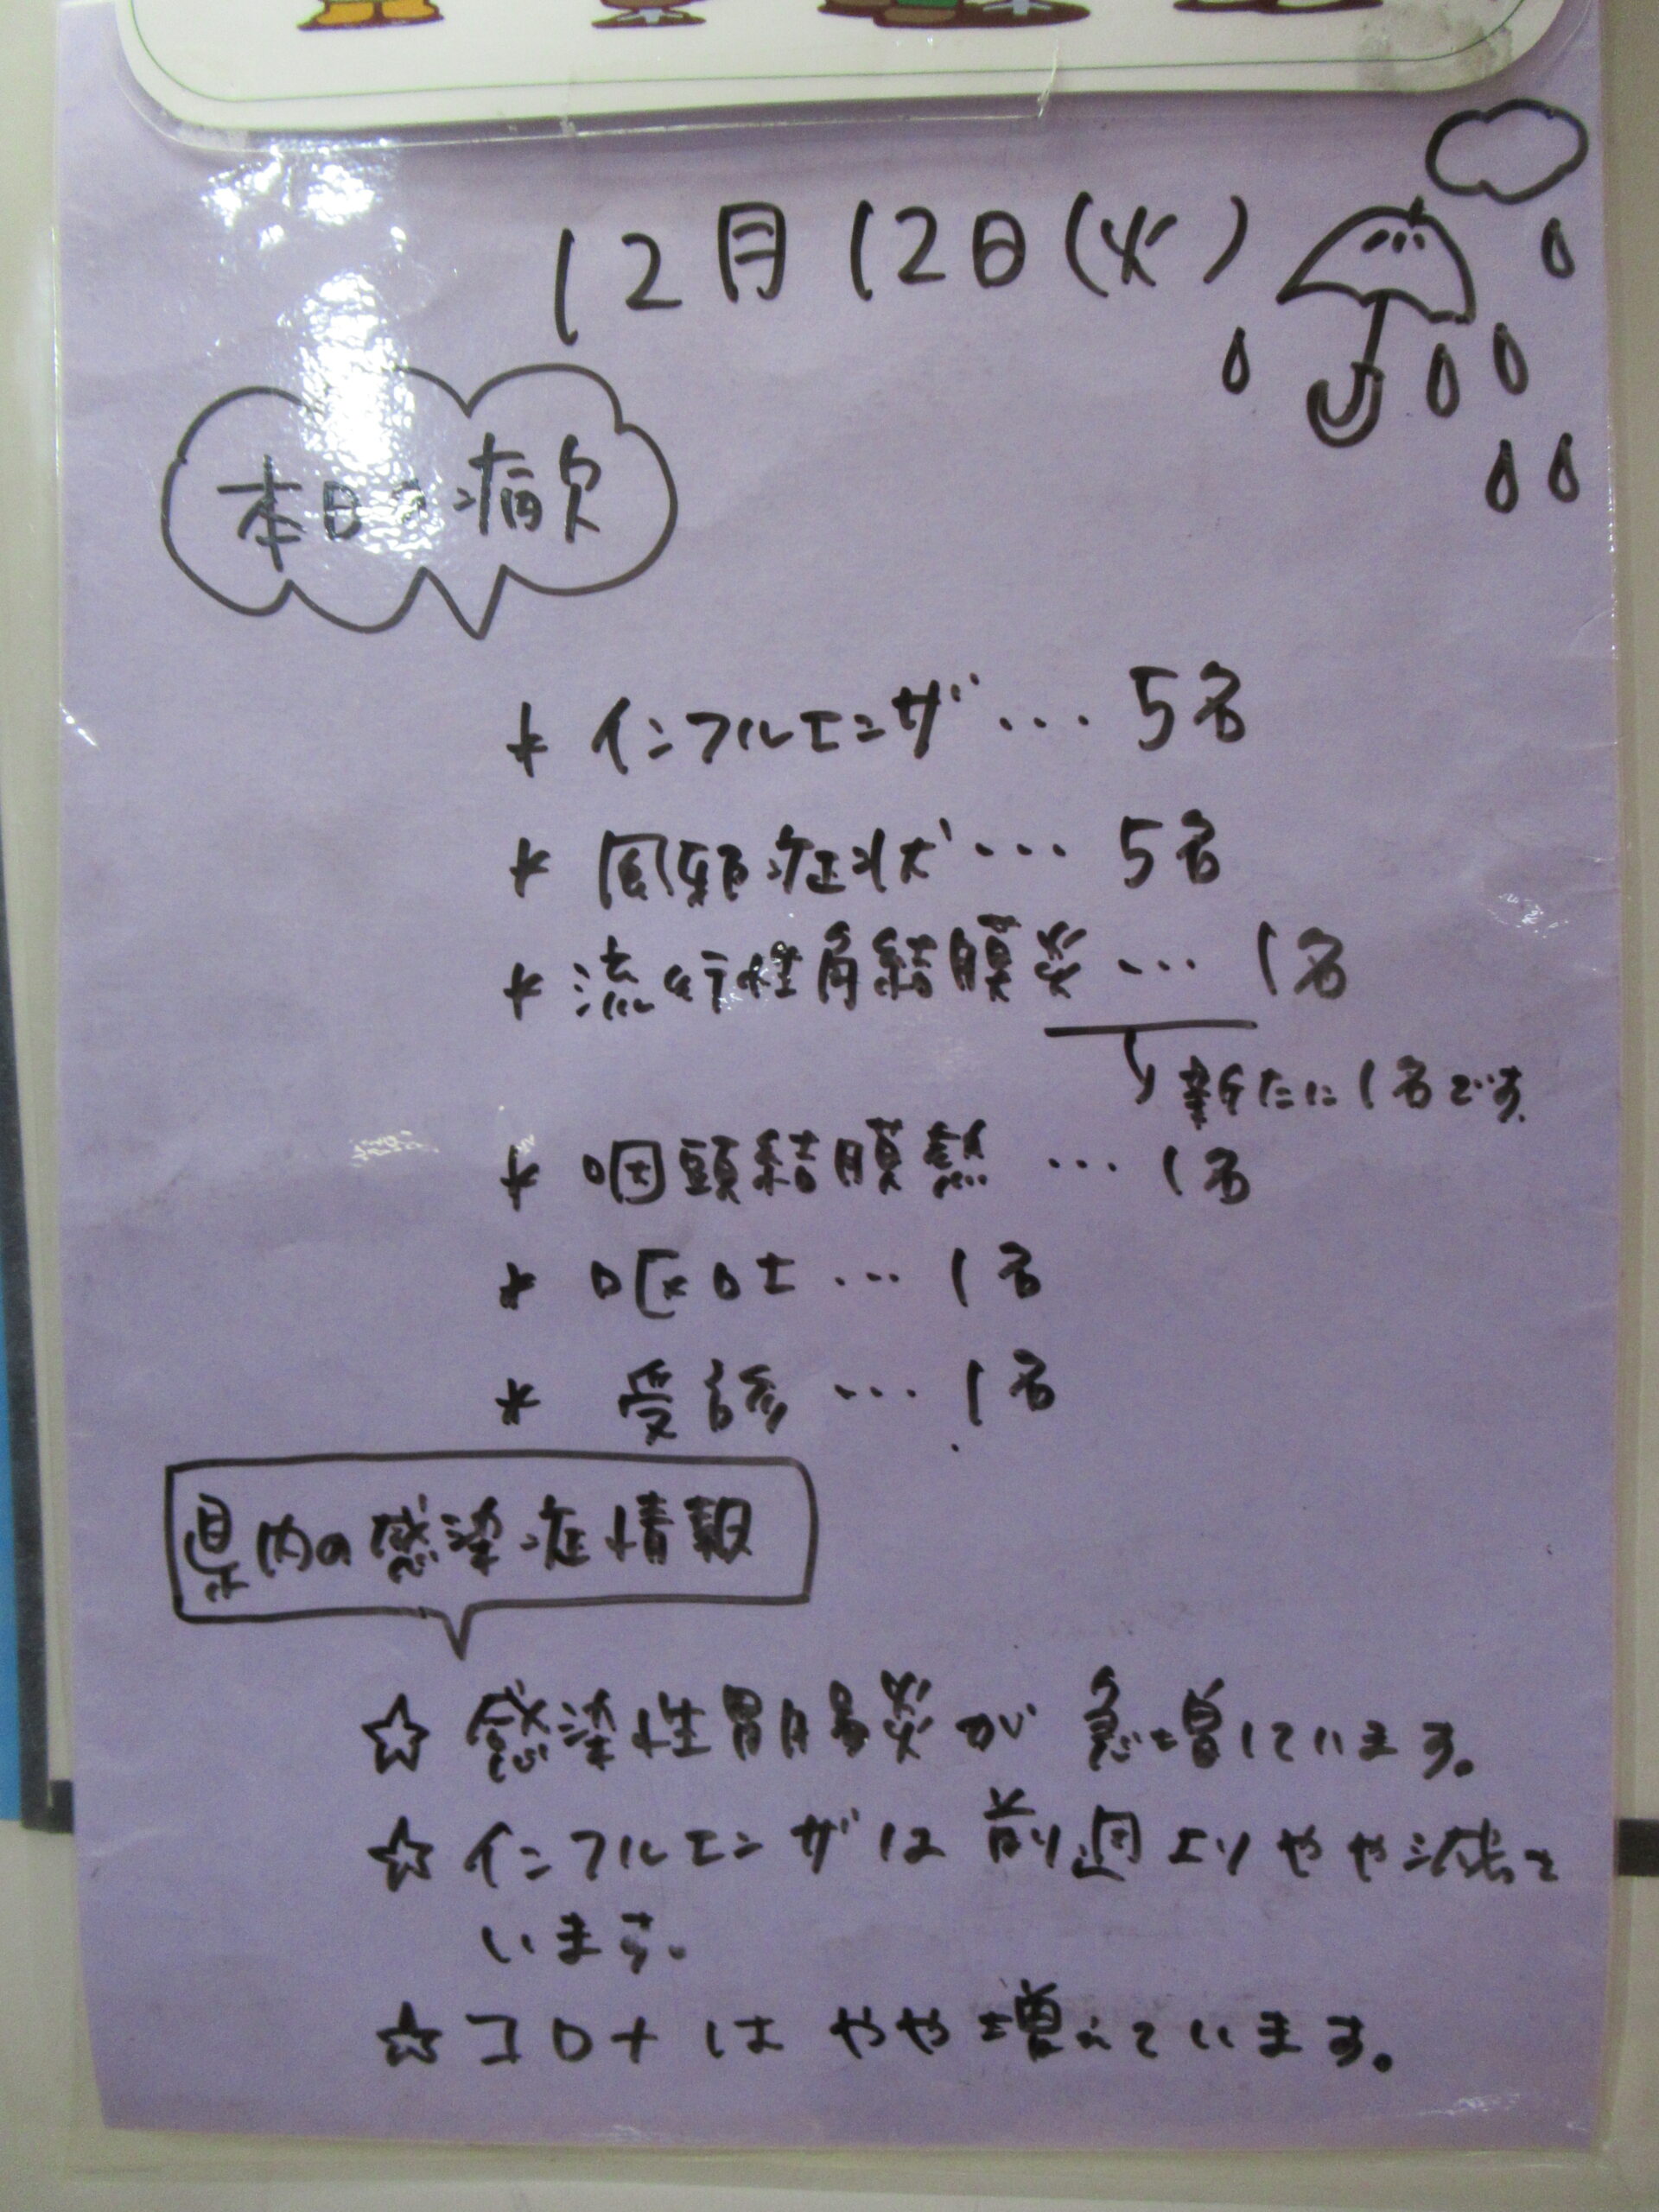 12月12日(火)
本日の病欠
* インフルエンザ… 5名
* 風邪症状… 5名
* 流行性角結膜炎… 1名
新たに1名です。
* 咽頭結膜熱 … 1名
* 嘔吐 … 1名
* 受診 … 1名
県内の感染症情報
☆ 感染性胃腸炎が急増しています。
☆ インフルエンザは前週よりやや減って
います。
☆ コロナはやや増えています。